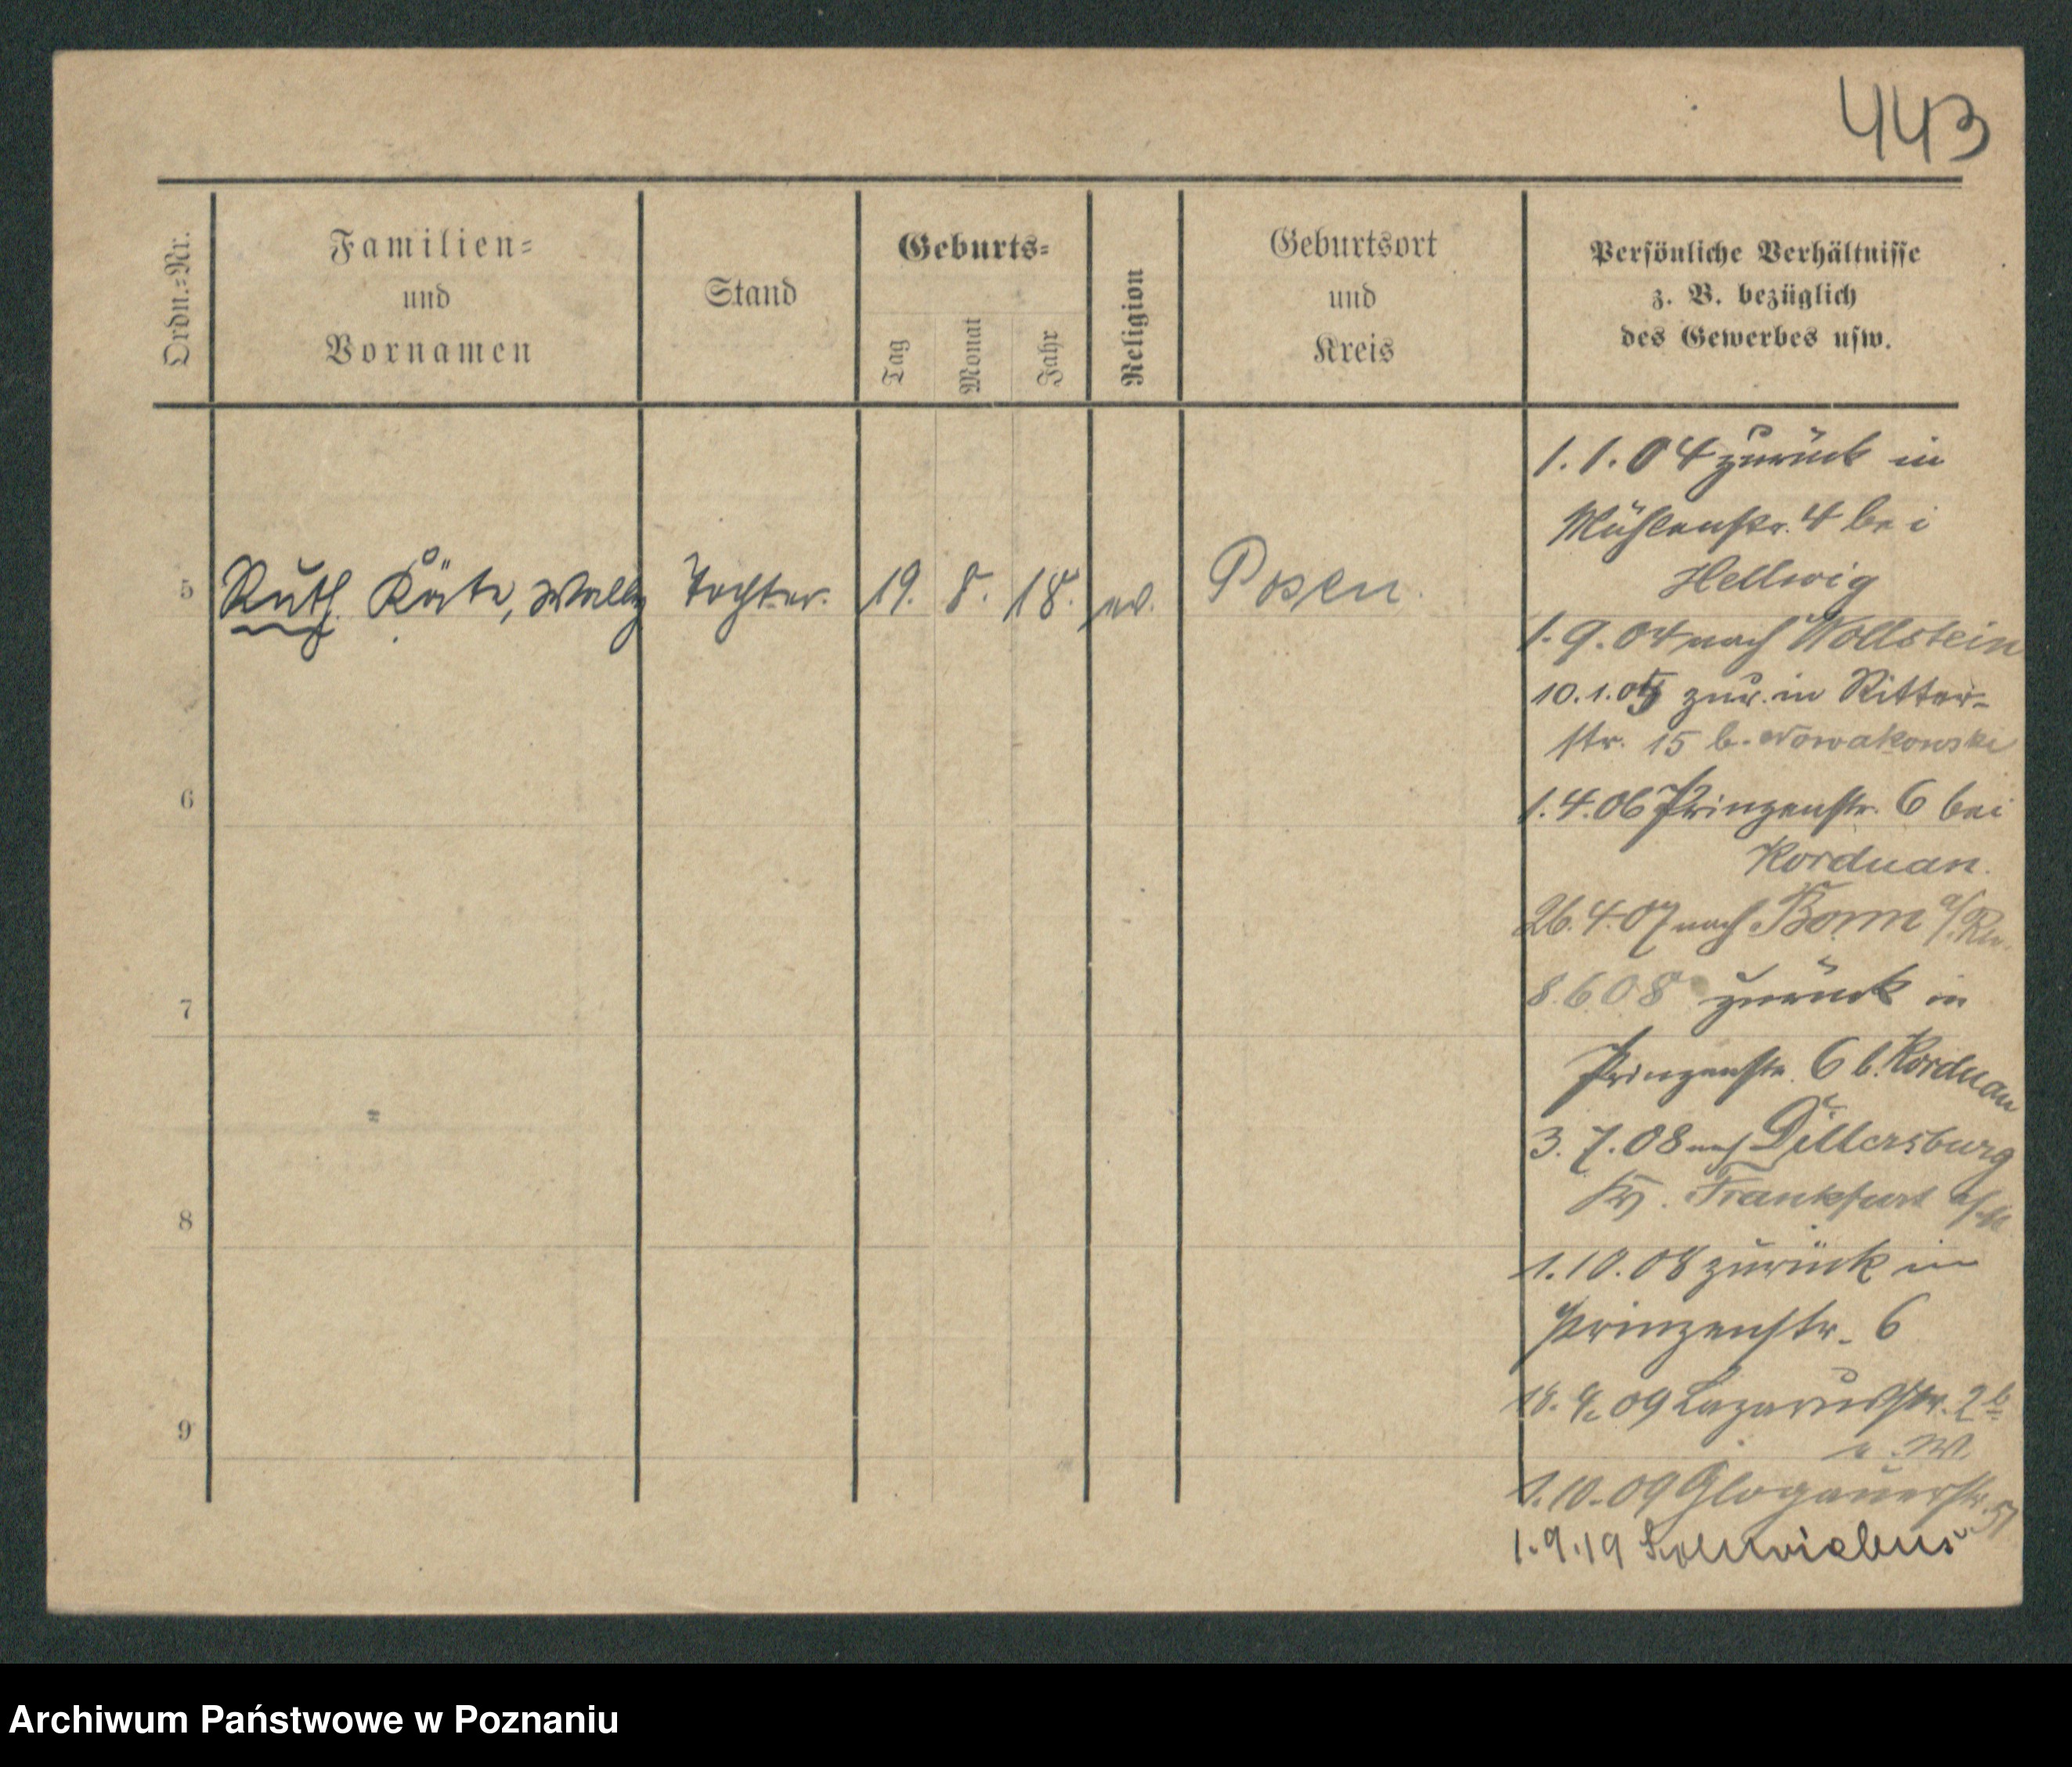 443
Ordn.=Nr.
Familien=
und
Vornamen
Stand
Geburts=
Tag
Monat
Jahr
Religion
Geburtsort
und
Kreis
Persönliche Verhältnisse
z. B. bezüglich
des Gewerbes usw.
5 Ruth Käte, Wally Tochter. 19. 8. 18. ev. Posen.
6
7
8
9
1.1.04 zurück in
Mühlenstr. 4 bei
Hellwig
1.9.04 nach Wollstein
10.1.05 zur. in Ritter-
str. 15 b. Nowakowski
1.4.06 Prinzenstr. 6 bei
Korduan.
26.4.07 nach Bonn a/Rh.
8.6.08 zurück in
Prinzenstr. 6 b. Korduan
3.7.08 nach Dillersburg
Frankfurt a/M
1.10.08 zurück in
Prinzenstr. 6
18.9.09 Lazarusstr. 2b
1.10.09 Glogauerstr. 51
1.9.19 Schwiebus
Archiwum Państwowe w Poznaniu